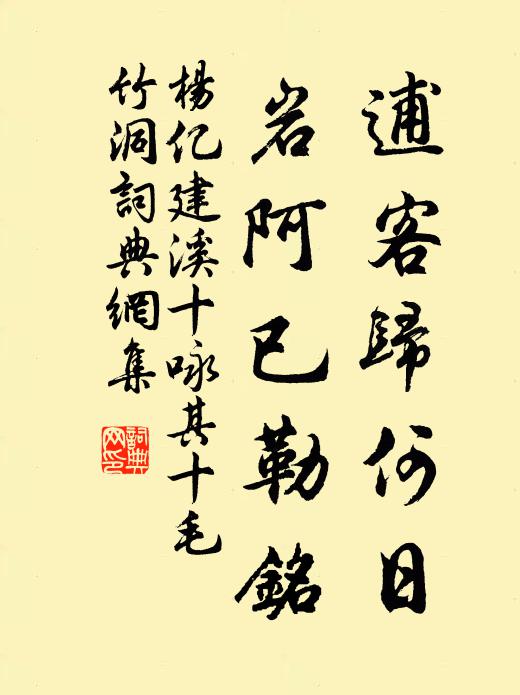 逋客歸何日
岩阿已勒銘
楊億建溪十咏其十毛
竹洞詞典網集
詞典
網印